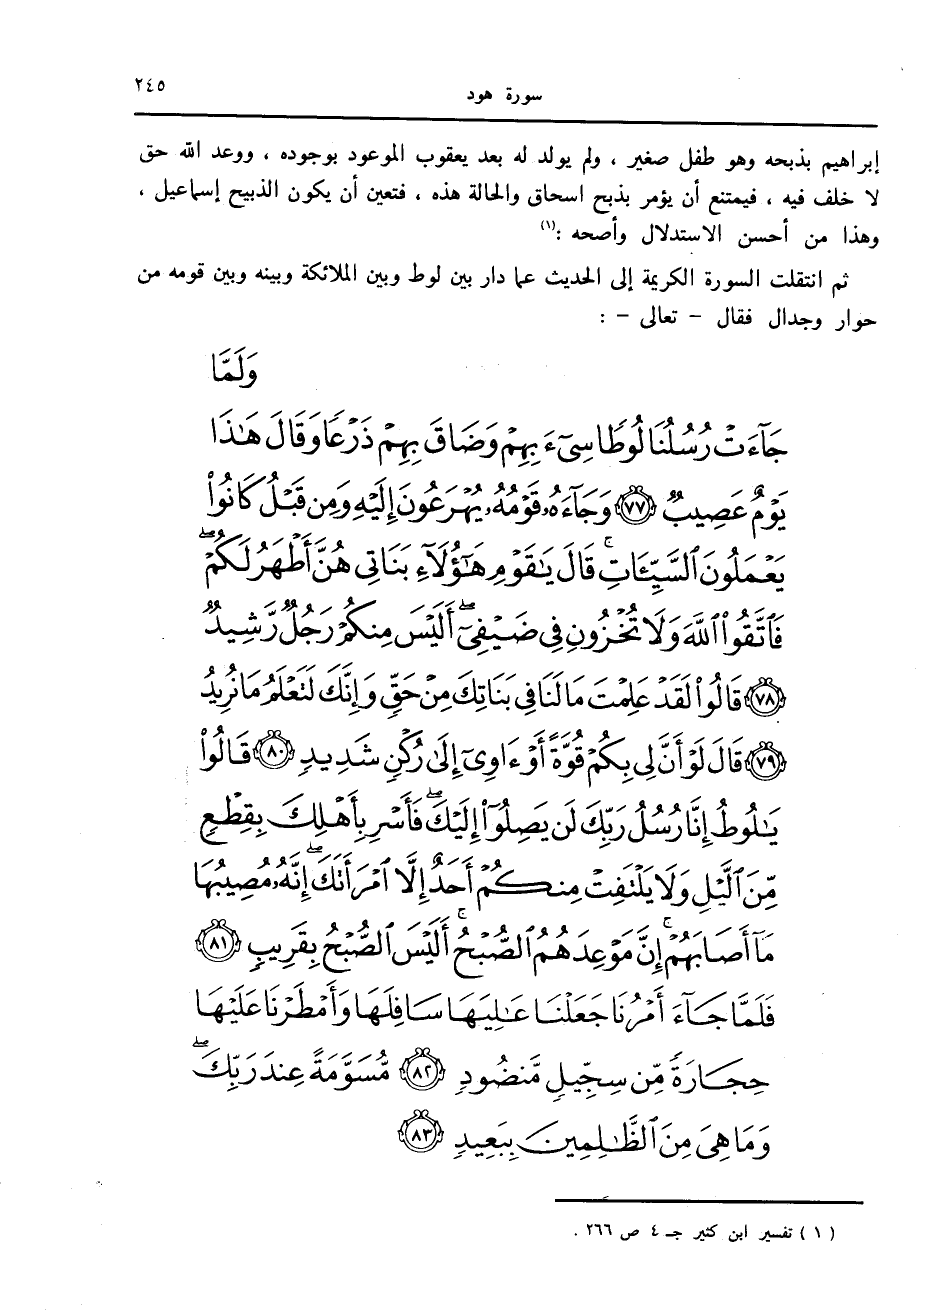 سورة هود
٢٤٥
إبراهيم بذبحه وهو طفل صغير ، ولم يولد له بعد يعقوب الموعود بوجوده ، ووعد الله حق
لا خلف فيه ، فيمتنع أن يؤمر بذبح اسحاق والحالة هذه ، فتعين أن يكون الذبيح إسماعيل ،
وهذا من أحسن الاستدلال وأصحه :(١)
ثم انتقلت السورة الكريمة إلى الحديث عما دار بين لوط وبين الملائكة وبينه وبين قومه من
حوار وجدال فقال - تعالى - :
وَلَمَّا
جَآءَتْ رُسُلُنَا لُوطًا سِىٓءَ بِهِمْ وَضَاقَ بِهِمْ ذَرْعًا وَقَالَ هَٰذَا
يَوْمٌ عَصِيبٌ ﴿٧٧﴾ وَجَآءَهُۥ قَوْمُهُۥ يُهْرَعُونَ إِلَيْهِ وَمِن قَبْلُ كَانُوا۟
يَعْمَلُونَ ٱلسَّيِّـَٔاتِ ۚ قَالَ يَٰقَوْمِ هَٰٓؤُلَآءِ بَنَاتِى هُنَّ أَطْهَرُ لَكُمْ ۖ
فَٱتَّقُوا۟ ٱللَّهَ وَلَا تُخْزُونِ فِى ضَيْفِىٓ ۖ أَلَيْسَ مِنكُمْ رَجُلٌ رَّشِيدٌ
﴿٧٨﴾ قَالُوا۟ لَقَدْ عَلِمْتَ مَا لَنَا فِى بَنَاتِكَ مِنْ حَقٍّ وَإِنَّكَ لَتَعْلَمُ مَا نُرِيدُ
﴿٧٩﴾ قَالَ لَوْ أَنَّ لِى بِكُمْ قُوَّةً أَوْ ءَاوِىٓ إِلَىٰ رُكْنٍ شَدِيدٍ ﴿٨٠﴾ قَالُوا۟
يَٰلُوطُ إِنَّا رُسُلُ رَبِّكَ لَن يَصِلُوٓا۟ إِلَيْكَ ۖ فَأَسْرِ بِأَهْلِكَ بِقِطْعٍ
مِّنَ ٱلَّيْلِ وَلَا يَلْتَفِتْ مِنكُمْ أَحَدٌ إِلَّا ٱمْرَأَتَكَ ۖ إِنَّهُۥ مُصِيبُهَا
مَآ أَصَابَهُمْ ۚ إِنَّ مَوْعِدَهُمُ ٱلصُّبْحُ ۚ أَلَيْسَ ٱلصُّبْحُ بِقَرِيبٍ ﴿٨١﴾
فَلَمَّا جَآءَ أَمْرُنَا جَعَلْنَا عَٰلِيَهَا سَافِلَهَا وَأَمْطَرْنَا عَلَيْهَا
حِجَارَةً مِّن سِجِّيلٍ مَّنضُودٍ ﴿٨٢﴾ مُّسَوَّمَةً عِندَ رَبِّكَ ۖ
وَمَا هِىَ مِنَ ٱلظَّٰلِمِينَ بِبَعِيدٍ ﴿٨٣﴾
( ١ ) تفسير ابن كثير جـ ٤ ص ٢٦٦ .